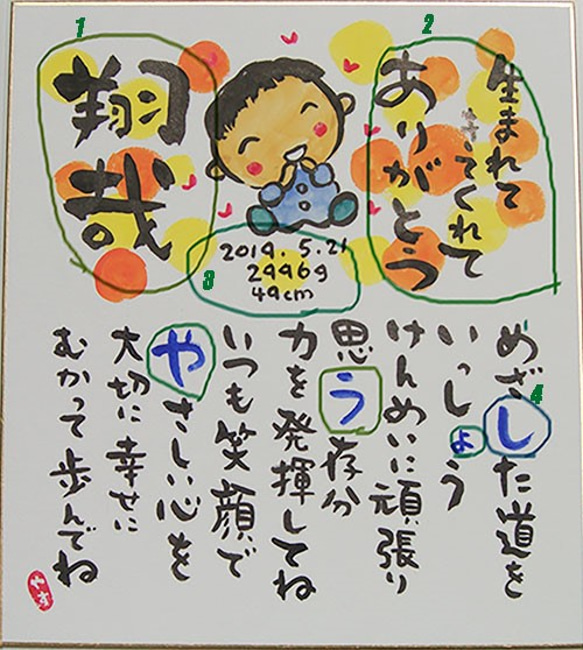 2
生まれて
きてくれて
ありがとう
1
翔哉
3
2014. 5.21
49cm
4
めざした道を
いっしょう
けんめいに頑張り
思う存分
力を発揮してね
いつも笑顔で
やさしい心を
大切に幸せに
むかって歩んでね
やす